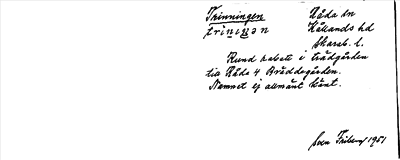 Trinningen Råda sn
trìnıŋən Kållands hd
Skarab. l.
Rund kabett i trädgården
till Råda 4 Bräddegården.
Namnet ej allmänt känt.
Sven Friberg 1951